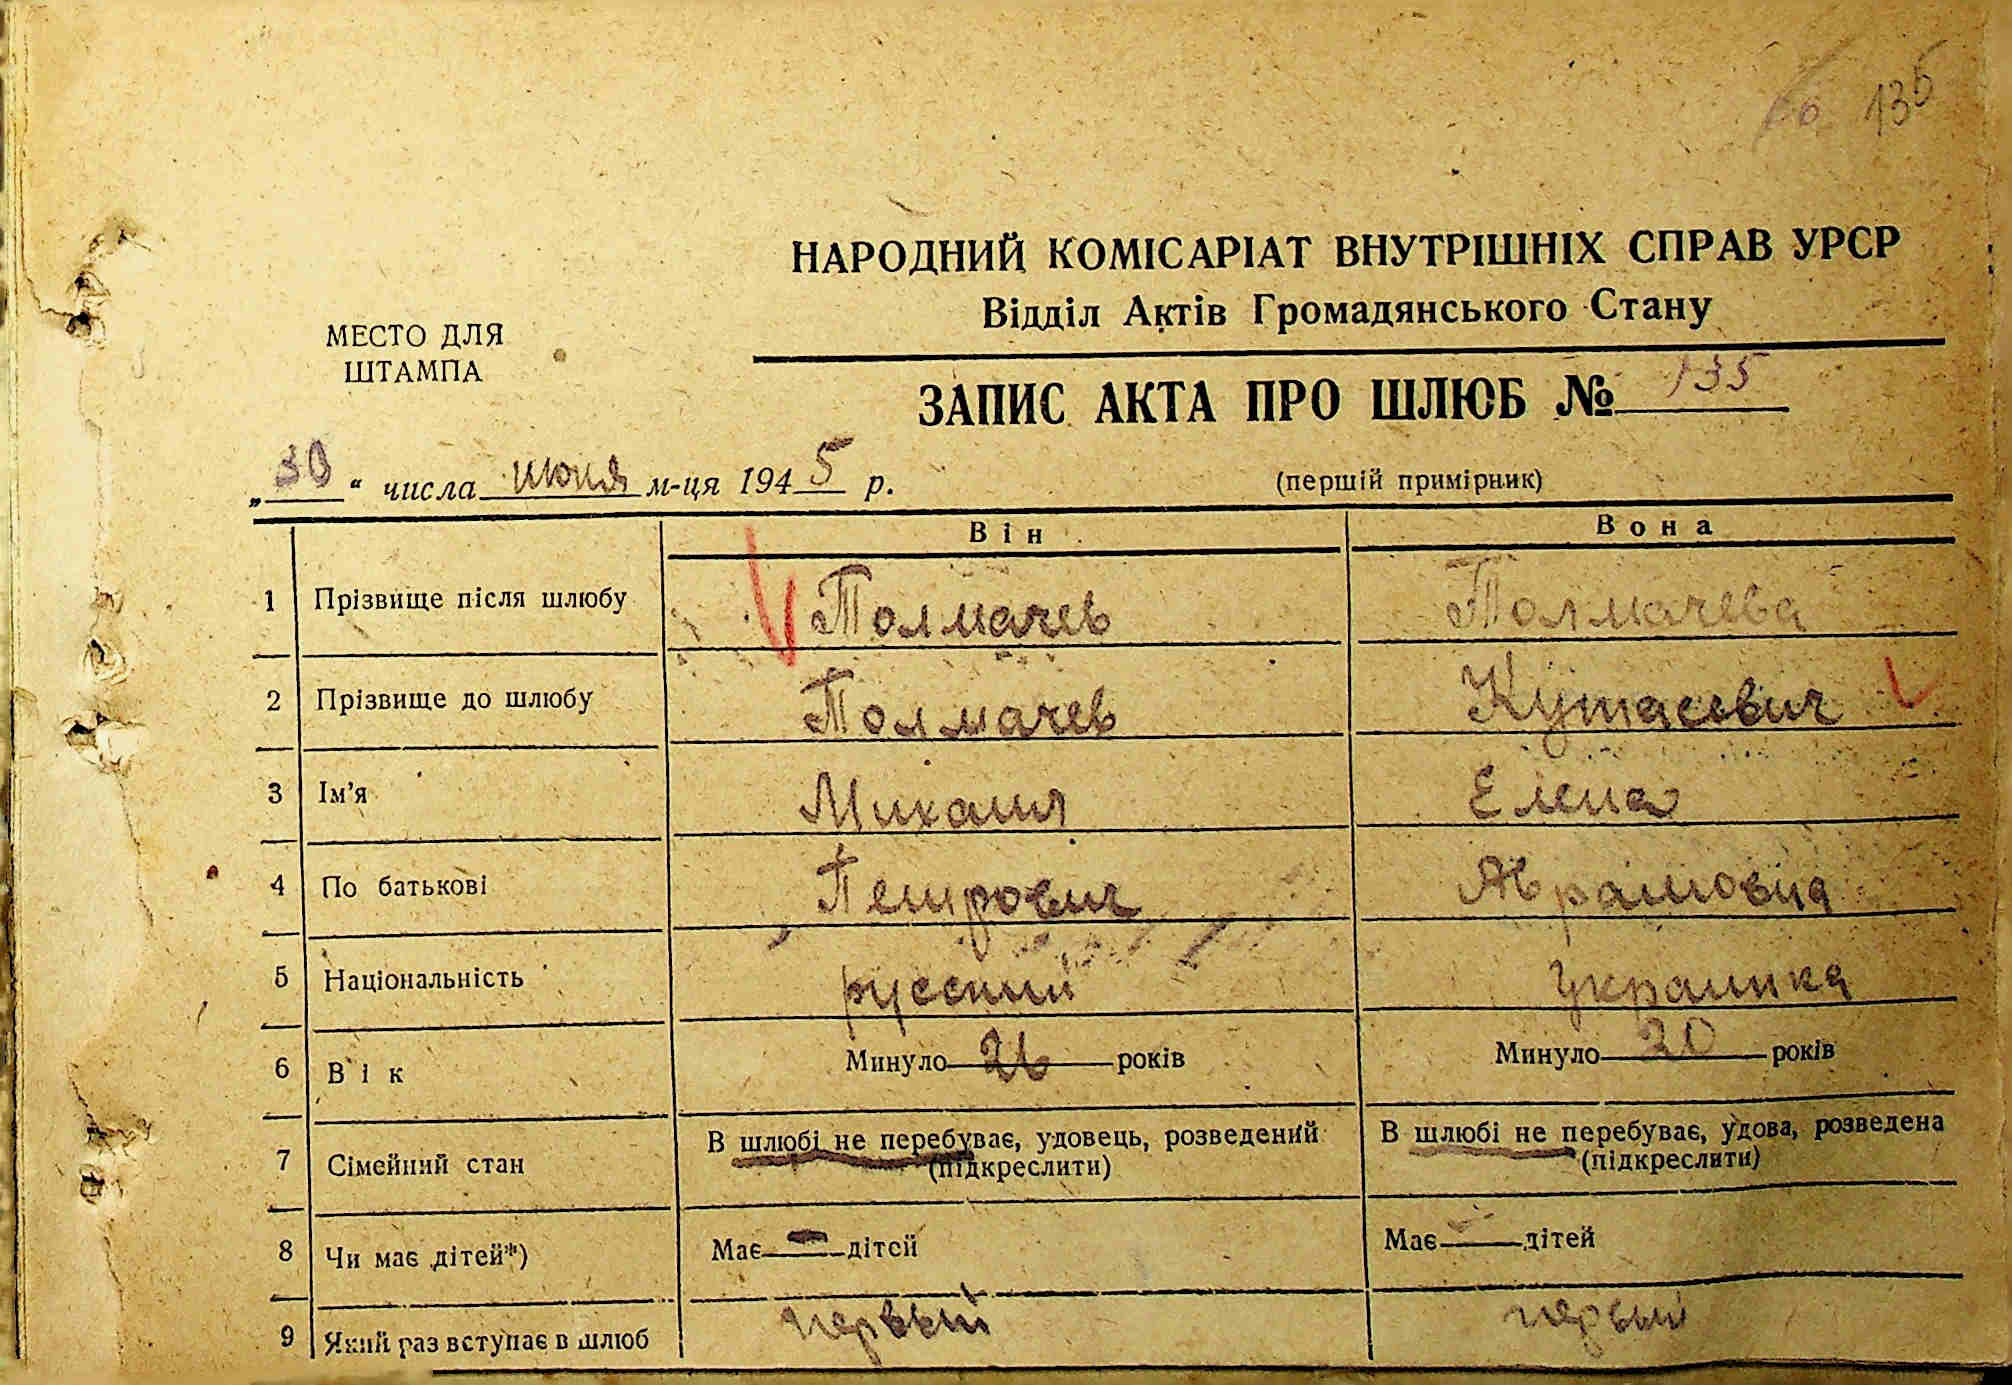 135
НАРОДНИЙ КОМІСАРІАТ ВНУТРІШНІХ СПРАВ УРСР
Відділ Актів Громадянського Стану
МЕСТО ДЛЯ
ШТАМПА
ЗАПИС АКТА ПРО ШЛЮБ № 135
„30“ числа июня м-ця 1945 р.
(першій примірник)
Він Вона
1 Прізвище після шлюбу Толмачев Толмачева
2 Прізвище до шлюбу Толмачев Кутасевич
3 Ім'я Михаил Елена
4 По батькові Петрович Аврамовна
5 Національність русский украинка
6 Вік Минуло 26 років Минуло 20 років
7 Сімейний стан В шлюбі не перебуває, удовець, розведений (підкреслити) В шлюбі не перебуває, удова, розведена (підкреслити)
8 Чи має дітей*) Має — дітей Має — дітей
9 Який раз вступає в шлюб первый первый